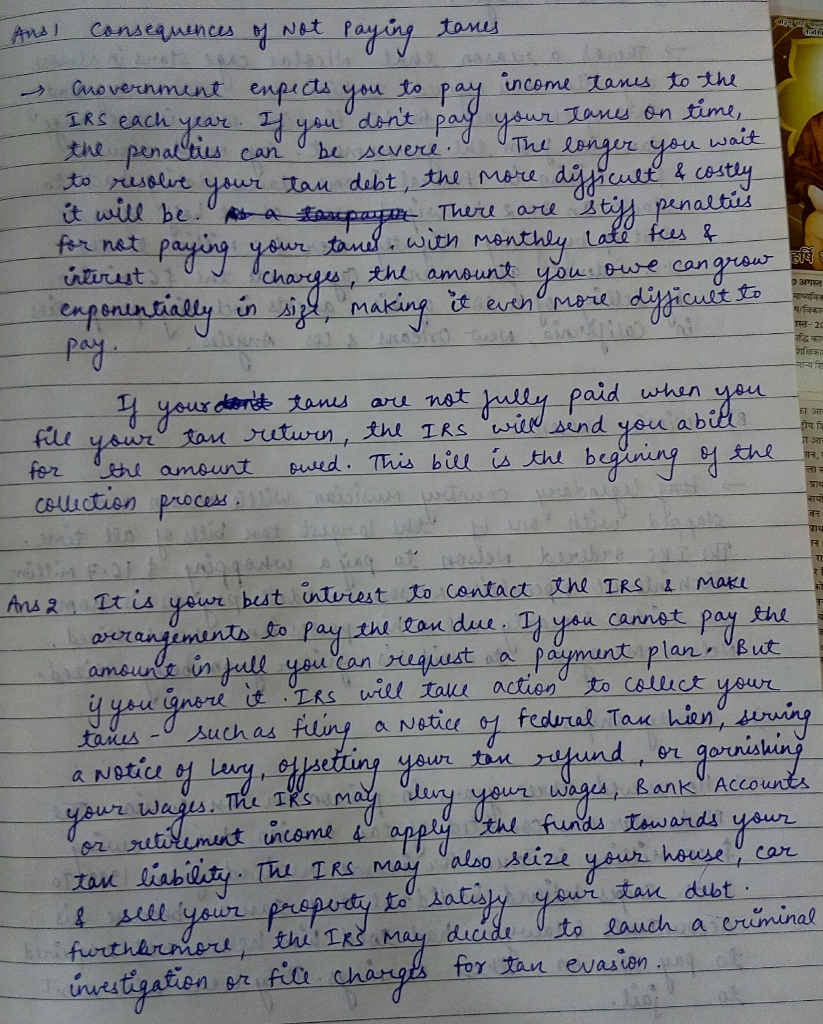 Ans 1 Consequences of Not Paying taxes
→ Government expects you to pay income taxes to the
IRS each year. If you don't pay your Taxes on time,
the penalties can be severe. The longer you wait
to resolve your tax debt, the more difficult & costly
it will be. As a taxpayer There are stiff penalties
for not paying your taxes. with monthly late fees &
interest charges, the amount you owe can grow
exponentially in size, making it even more difficult to
pay.
If your don't taxes are not fully paid when you
file your tax return, the IRS will send you a bill
for the amount owed. This bill is the begining of the
collection process.
Ans 2. It is your best interest to contact the IRS & make
arrangements to pay the tax due. If you cannot pay the
amount in full you can request a payment plan. But
if you ignore it. IRS will take action to collect your
taxes - such as filing a Notice of federal Tax Lien, serving
a Notice of Levy, offsetting your tax refund, or garnishing
your wages. The IRS may levy your wages, Bank Accounts
or retirement income & apply the funds towards your
tax liability. The IRS may also seize your house, car
& sell your property to satisfy your tax debt.
furthermore, the IRS may decide to lauch a criminal
investigation or file charges for tax evasion.